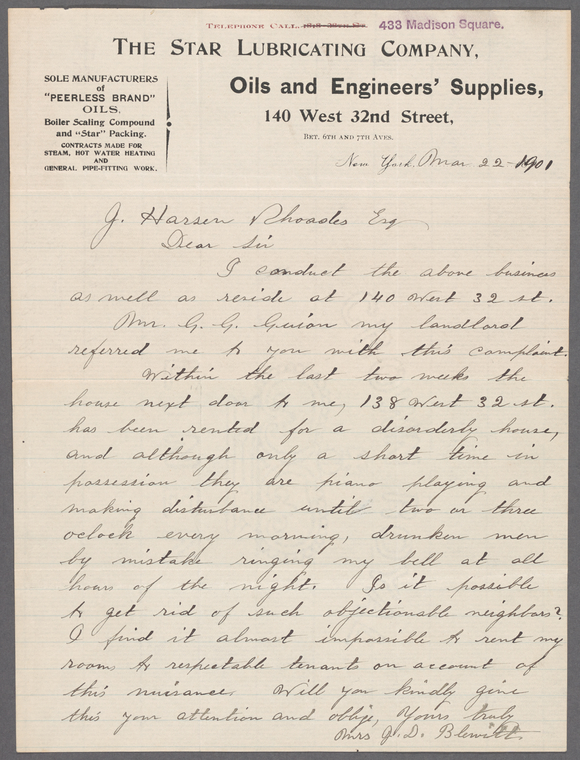 TELEPHONE CALL, 1818-38TH ST. 433 Madison Square.
THE STAR LUBRICATING COMPANY,
SOLE MANUFACTURERS
of
"PEERLESS BRAND"
OILS.
Boiler Scaling Compound
and "Star" Packing.
CONTRACTS MADE FOR
STEAM, HOT WATER HEATING
AND
GENERAL PIPE-FITTING WORK.
Oils and Engineers' Supplies,
140 West 32nd Street,
BET. 6TH AND 7TH AVES.
New York, Mar 22-1901
J. Harsen Rhoades Esq
Dear Sir
I conduct the above business
as well as reside at 140 West 32 st.
Mr. G. G. Guion my landlord
referred me to you with this complaint.
Within the last two weeks the
house next door to me, 138 West 32 st.
has been rented for a disorderly house,
and although only a short time in
possession they are piano playing and
making disturbance until two or three
oclock every morning, drunken men
by mistake ringing my bell at all
hours of the night. Is it possible
to get rid of such objectionable neighbors?
I find it almost impossible to rent my
rooms to respectable tenants on account of
this nuisance. Will you kindly give
this your attention and oblige, Yours truly
Mrs J. D. Blewitt.